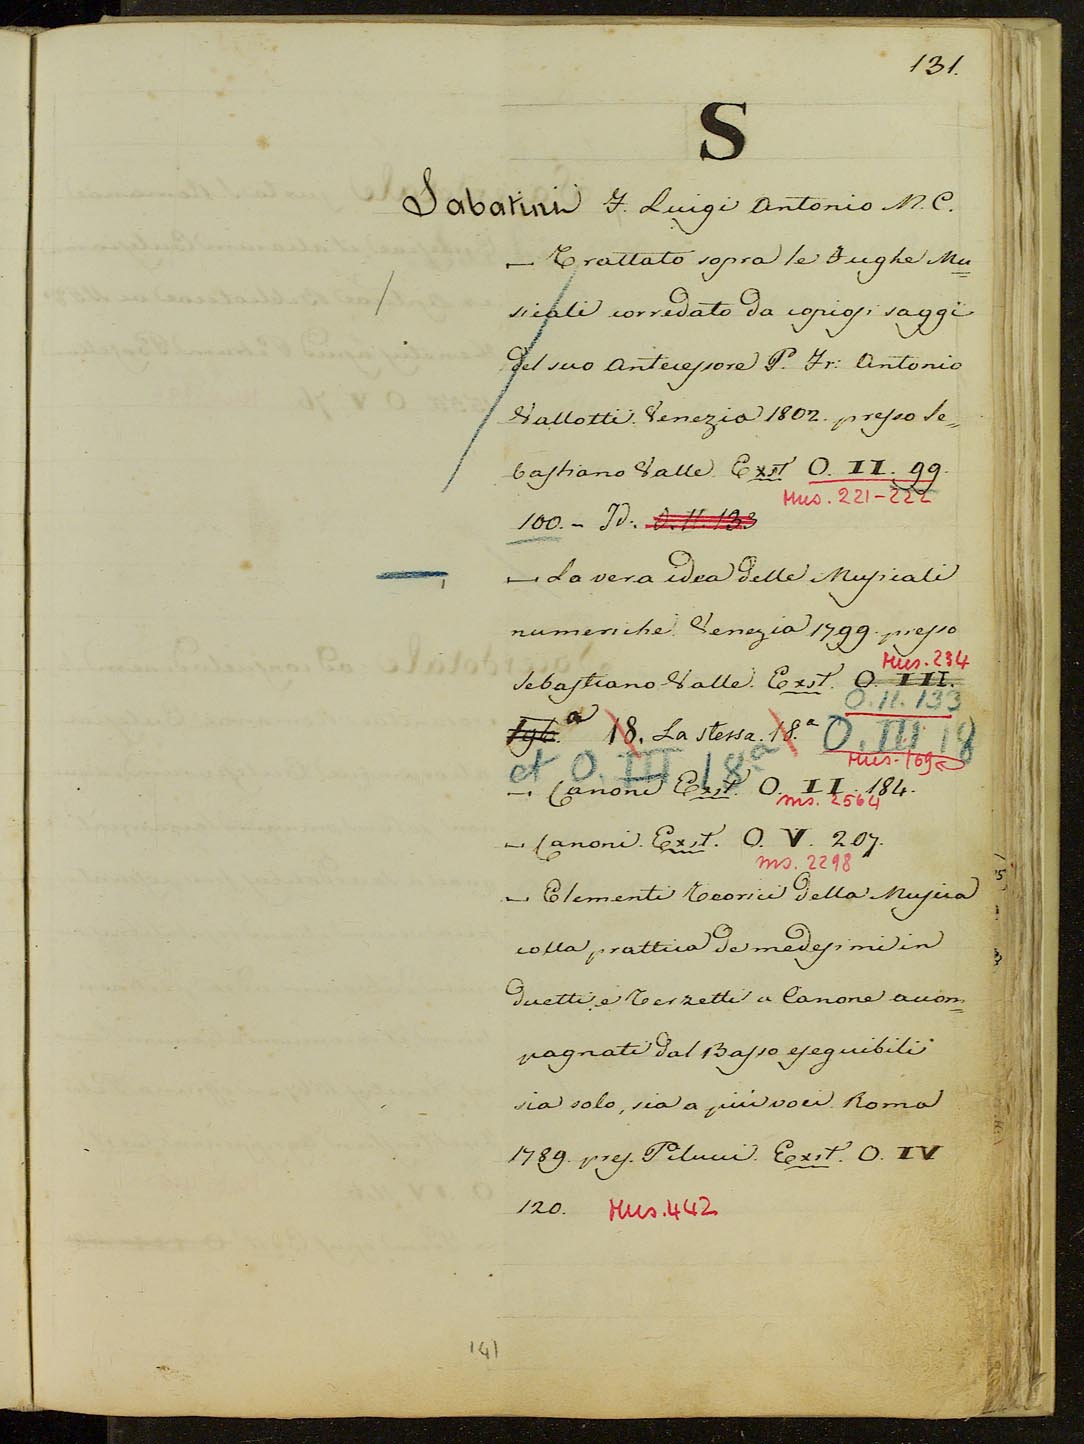 131.
S
Sabatini F. Luigi Antonio M. C.
— Trattato sopra le Fughe Mu=
sicali corredato da copiosi saggi
del suo Antecessore P. Fr: Antonio
Vallotti. Venezia 1802. presso Se=
bastiano Valle. Exst. O. II. 99.
Mus. 221-222
100. - Id. O. II. 133
— La vera idea delle Musicali
numeriche. Venezia 1799. presso
Mus. 234
Sebastiano Valle. Exst. O. III.
O. II. 133
a 18. La stessa. 18.a O. III 18
et O. III 18a Mus. 169
— Canoni Exst. O. II. 184.
ms. 2564
— Canoni. Exst. O. V. 207.
ms. 2298
— Elementi Teorici della Musica
colla prattica de medesimi in
duetti, e Terzetti a Canone accom=
pagnati dal Basso eseguibili
sia solo, sia a più voci. Roma
1789. pres. Pilucci. Exst. O. IV
120. Mus. 442
141